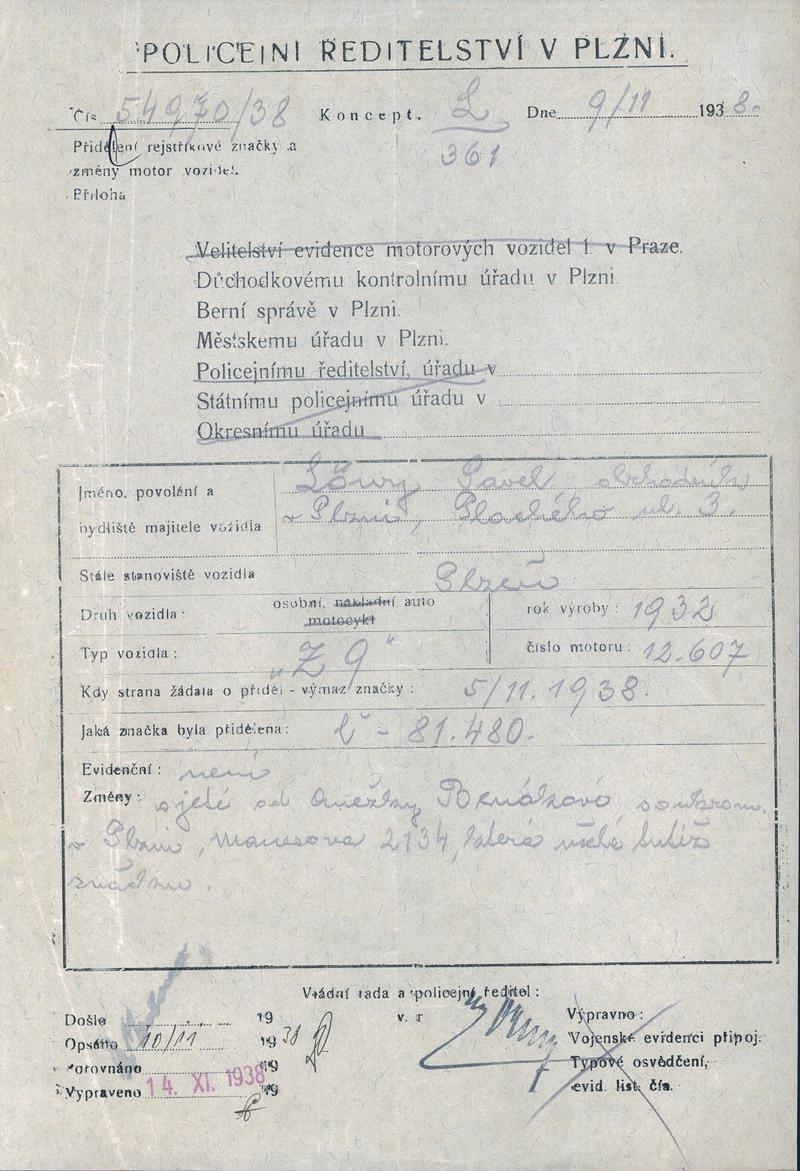 POLICEJNI ŘEDITELSTVÍ V PLZNI.
Čís. 54970/38 Koncept. L Dne 9/11 1938.
361
Přidělení rejstříkové značky a
změny motor vozidel.
Příloha
Velitelství evidence motorových vozidel 1. v Praze.
Důchodkovému kontrolnímu úřadu v Plzni
Berní správě v Plzni.
Městskemu úřadu v Plzni.
Policejnímu ředitelství, úřadu v
Státnímu policejnímu úřadu v
Okresnímu úřadu
Jméno, povolání a Löwy Pavel obchodník
bydliště majitele vozidla v Plzni, Plachého ul. 3.
Stálé stanoviště vozidla Plzeň
Druh vozidla: osobní, nakladní auto rok výroby: 1932
motocykl
Typ vozidla: „Z 9" číslo motoru: 12.607
Kdy strana žádala o příděl - výmaz značky: 5/11. 1938.
Jaká značka byla přidělena: Č - 81.480.
Evidenční: není
Změny: ojeté od Anežky Benákové, soukrom.
v Plzni, Manesova 2134, která
Vládní rada a policejní ředitel:
Došlo 19 v. r Výpravno:
Opsáno 10/11 1938 Vojenské evidenci připoj.
Porovnáno 19 Typové osvědčení,
Vypraveno 14. XI. 1938 19 evid. list. čís.